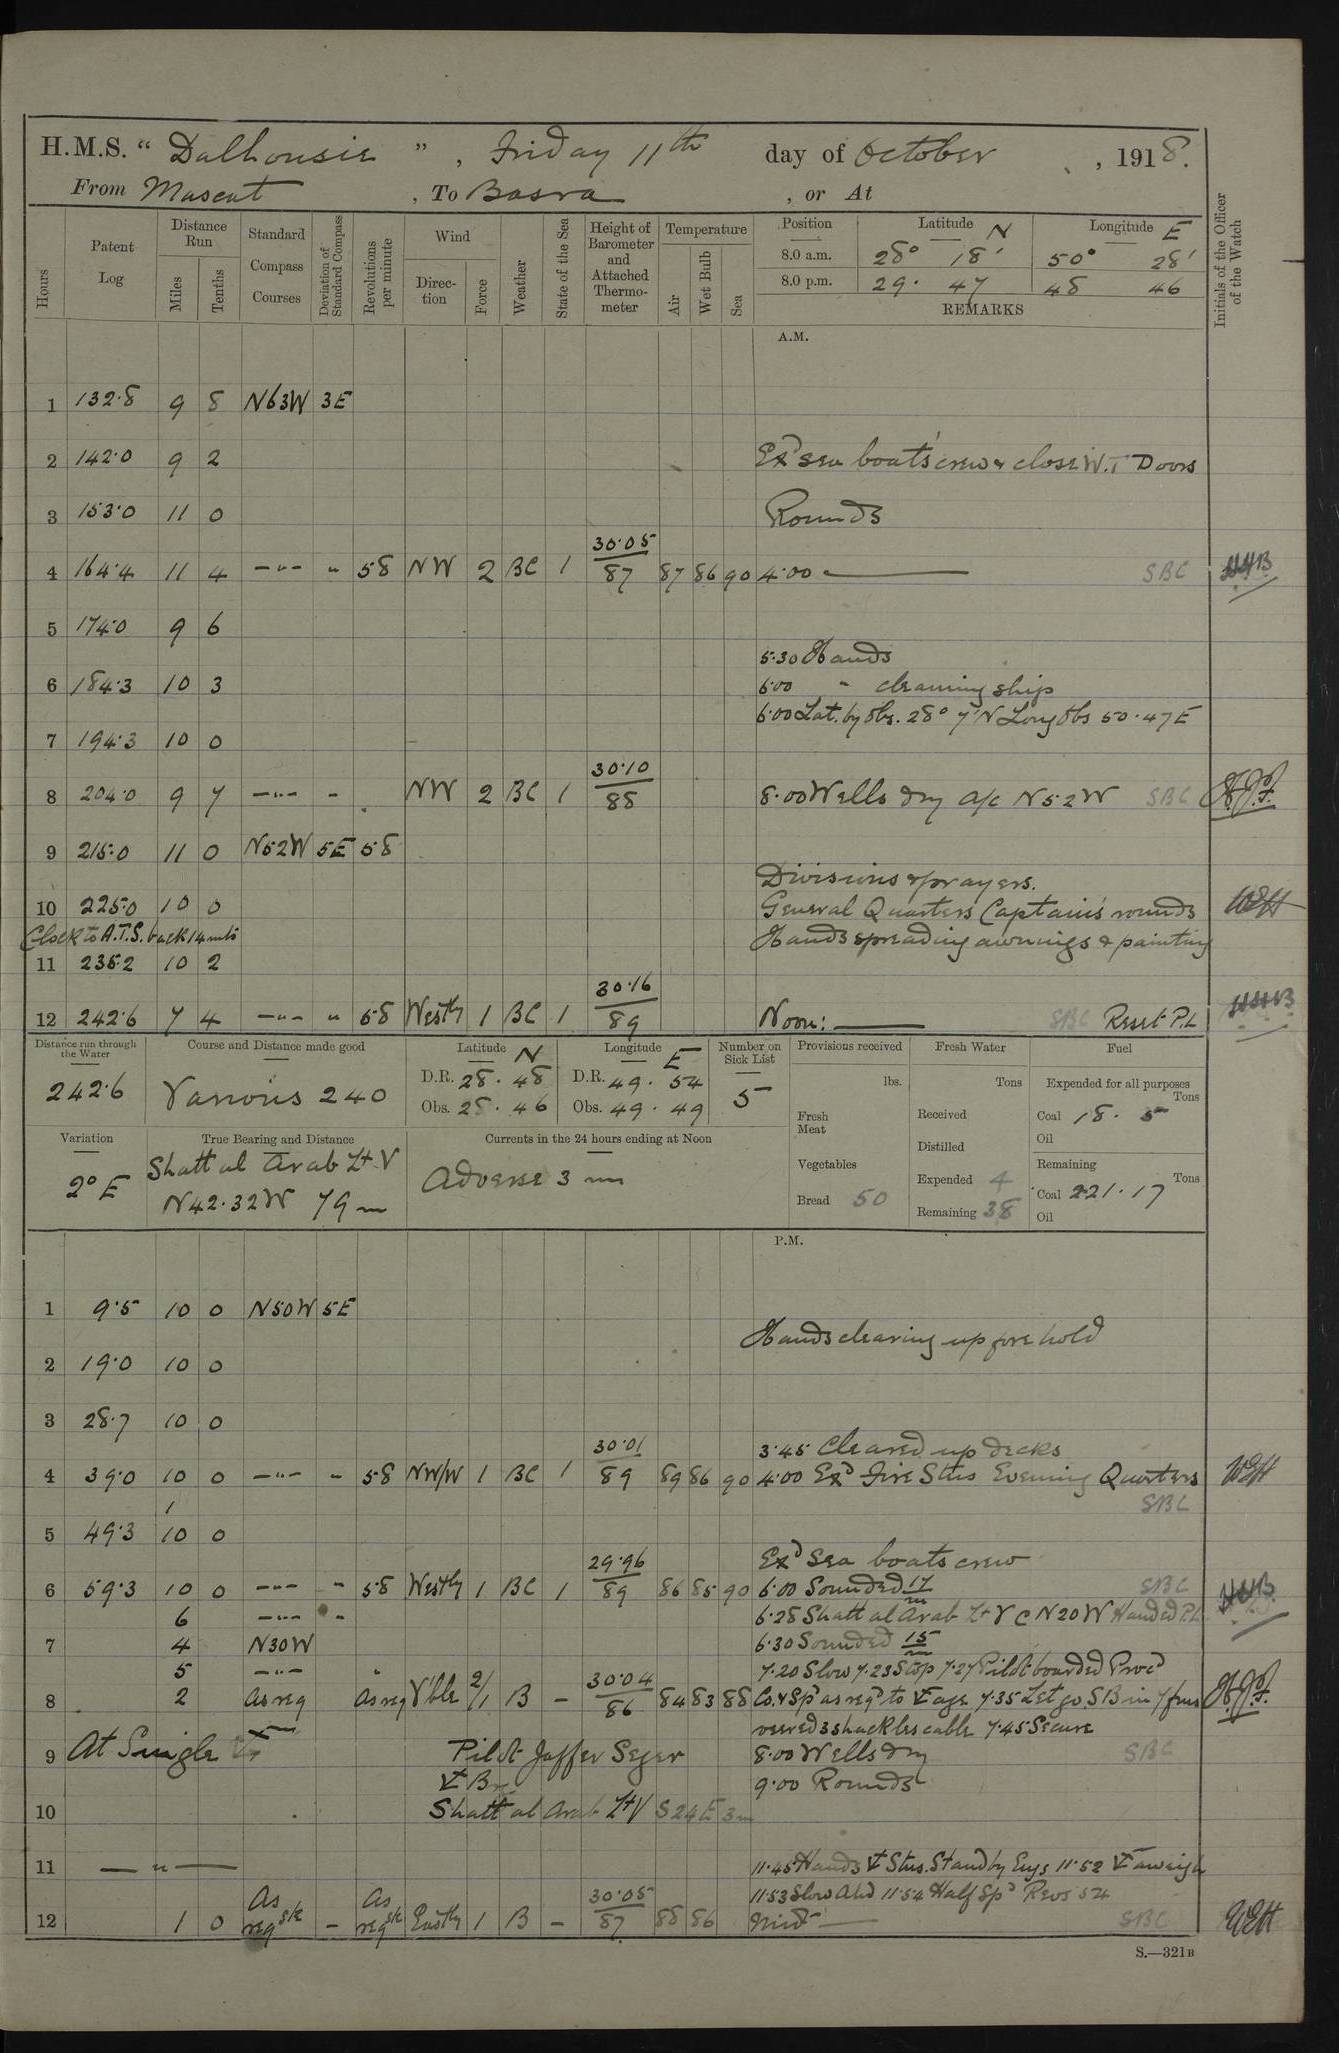 H.M.S. “ Dalhousie ” , Friday 11th day of October , 1918.
From Muscat , To Basra , or At
Hours
Patent Log
Distance Run
Miles
Tenths
Standard Compass Courses
Deviation of Standard Compass
Revolutions per minute
Wind
Direction
Force
Weather
State of the Sea
Height of Barometer and Attached Thermometer
Temperature
Air
Wet Bulb
Sea
Position Latitude N Longitude E
8.0 a.m. 28° 18' 50° 28'
8.0 p.m. 29. 47 48 46
REMARKS
Initials of the Officer of the Watch
A.M.
1 132.8 9 8 N63W 3E
2 142.0 9 2 Exd sea boat's crew & close W.T Doors
3 153.0 11 0 Rounds
4 164.4 11 4 —"— " 58 NW 2 BC 1 30.05 / 87 87 86 90 4.00 —— SBC
5 174.0 9 6
5.30 Hands
6 184.3 10 3 6.00 " cleaning ship
6.00 Lat. by Obs. 28° 7' N Long Obs 50.47 E
7 194.3 10 0
8 204.0 9 7 —"— " NW 2 BC 1 30.10 / 88 8.00 Wells dry A/c N52W SBC
9 215.0 11 0 N52W 5E 58
Divisions & prayers.
10 225.0 10 0 General Quarters Captain's rounds WEH
Clock to A.T.S. back 14 mts Hands spreading awnings & painting
11 235.2 10 2
12 242.6 7 4 —"— " 58 Westly 1 BC 1 30.16 / 89 Noon: —— SBC Reset P.L
Distance run through the Water
242.6
Course and Distance made good
Various 240
Latitude N
D.R. 28. 48
Obs. 28. 46
Longitude E
D.R. 49. 54
Obs. 49. 49
Number on Sick List
5
Provisions received
lbs.
Fresh Meat
Vegetables
Bread 50
Fresh Water
Tons
Received
Distilled
Expended 4
Remaining 38
Fuel
Expended for all purposes
Tons
Coal 18. 5
Oil
Remaining
Tons
Coal 221.17
Oil
Variation
2° E
True Bearing and Distance
Shatt al Arab Lt V
N42.32W 79 m
Currents in the 24 hours ending at Noon
Adverse 3 m
P.M.
1 9.5 10 0 N50W 5E
Hands clearing up fore hold
2 19.0 10 0
3 28.7 10 0
3.45 Cleared up decks
4 39.0 10 0 —"— " 58 NW/W 1 BC 1 30.01 / 89 89 86 90 4.00 Exd Fire Stns Evening Quarters WEH
SBC
5 49.3 10 0
Exd Sea boats crew
6 59.3 10 0 —"— " 58 Westly 1 BC 1 29.96 / 89 86 85 90 6.00 Sounded 17 m SBC
6 —"— " 6.28 Shatt al Arab Lt V C N20W Handed P.L.
7 4 N30W 6.30 Sounded 15 m
5 —"— " 7.20 Slow 7.23 Stop 7.27 Pilot boarded Procd
8 2 As req As req V'ble 2/1 B — 30.04 / 86 84 83 88 Co. & Spd as reqd to age 7.35 Let go. SB in 7 fms
veered 3 shackles cable 7.45 Secure
9 At Single 8.00 Wells dry SBC
Pilot Jaffer Seger
9.00 Rounds
10 Shatt al Arab Lt V S24E 3m
11 — " — 11.45 Hands Stns. Stand by Engs 11.52 aweigh
11.53 Slow Ahd 11.54 Half Spd Revs 54
12 1 0 As req — As req Eastly 1 B — 30.05 / 87 88 86 Midt — SBC WEH
S.—321B